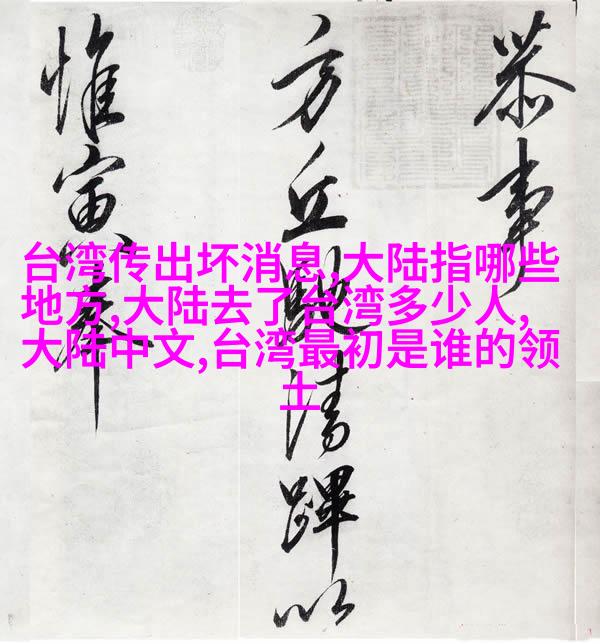 台湾传出坏消息,大陆指哪些
地方,大陆去了台湾多少人,
大陆中文,台湾最初是谁的领
土
恭事
方丘清蹕以
惟寅奉